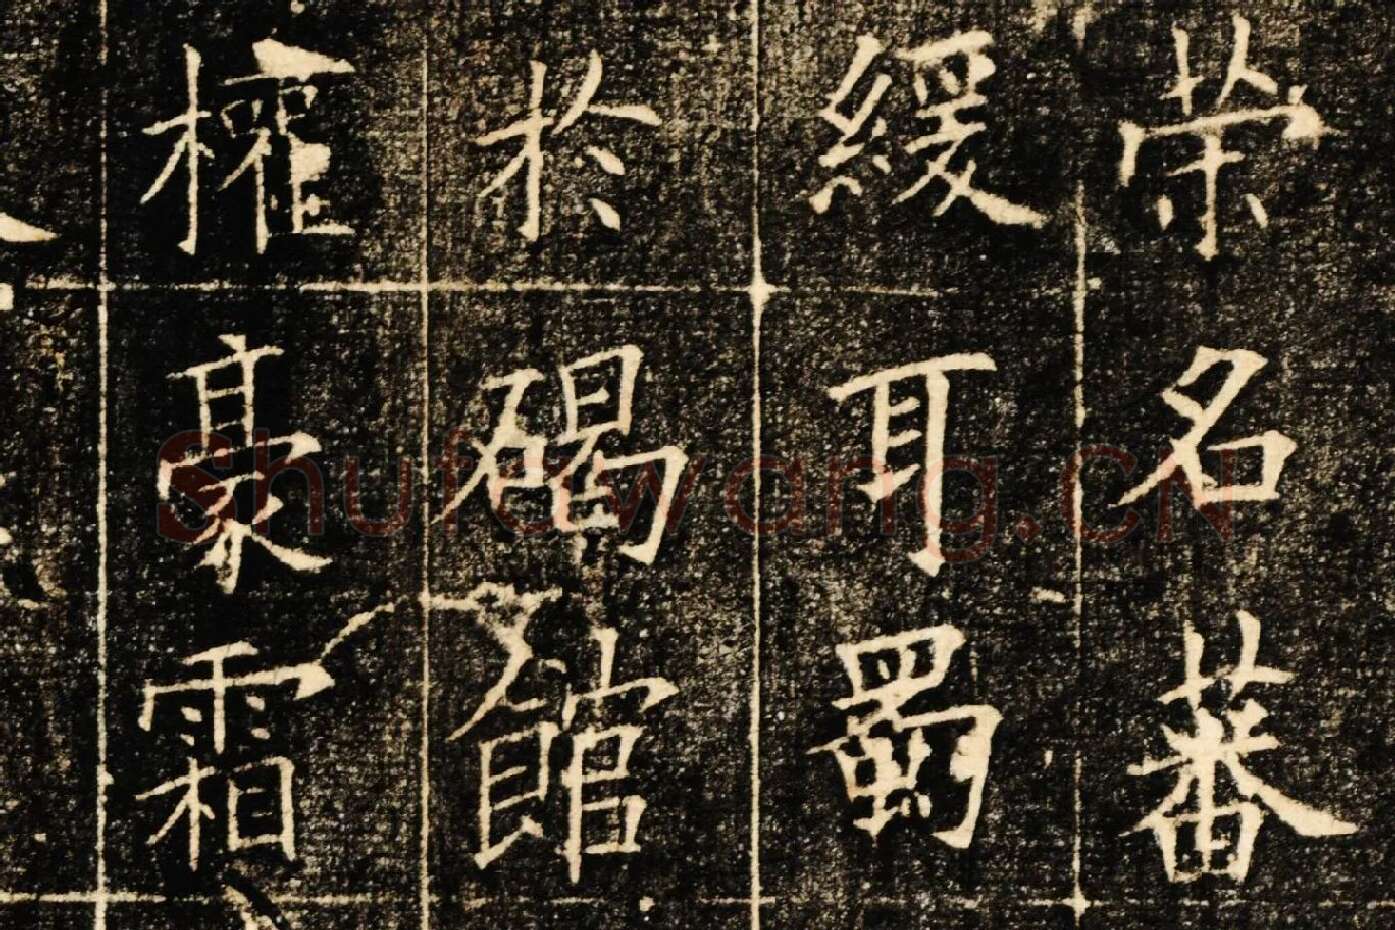 荣名蕃
緩耳蜀
於碣館
權豪霜
Shufawang.CN